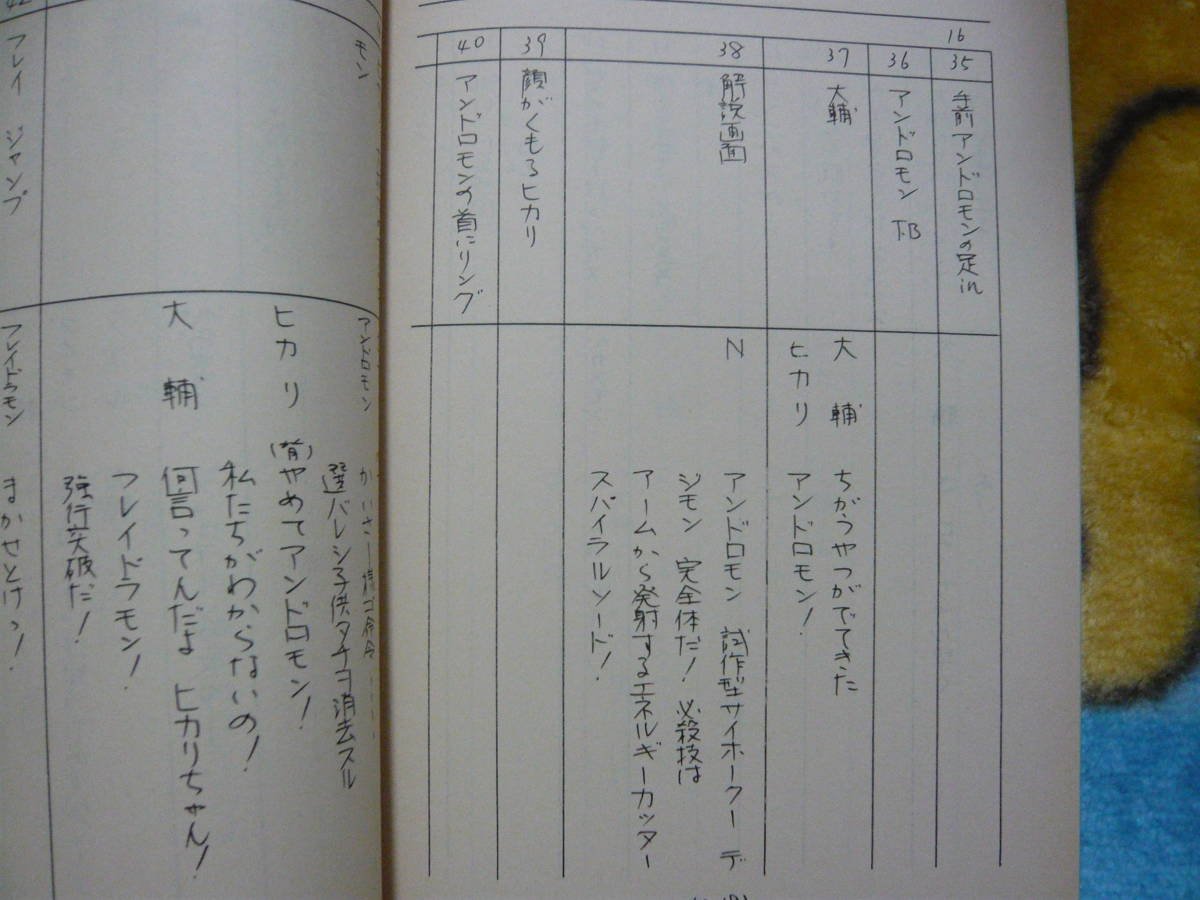 16
35
手前アンドロモンの足in
36
アンドロモン T.B
37
大輔
大輔 ちがうやつがでてきた
ヒカリ アンドロモン!
38
解説画面
N アンドロモン 試作型サイホークー デ
ジモン 完全体だ! 必殺技は
アームから発射するエネルギーカッター
スパイラルソード!
39
顔がくもるヒカリ
40
アンドロモンの首にリング
モン
アンドロモン
選バレシ子供タチヲ消去スル
ヒカリ (背)やめてアンドロモン!
私たちがわからないの!
大輔 何言ってんだよ ヒカリちゃん!
フレイドラモン!
強行突破だ!
フレイ ジャンプ
フレイドラモン まかせとけっ!